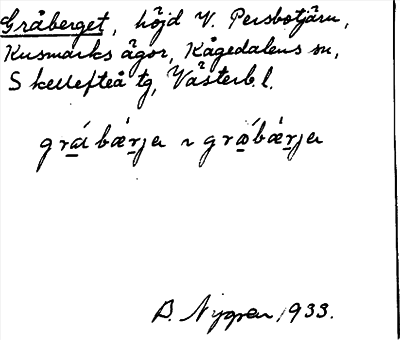 Gråberget, höjd V. Persbotjärn,
Kusmarks ägor, Kågedalens sn,
Skellefteå tg, Västerb. l.
B. Nygren 1933.